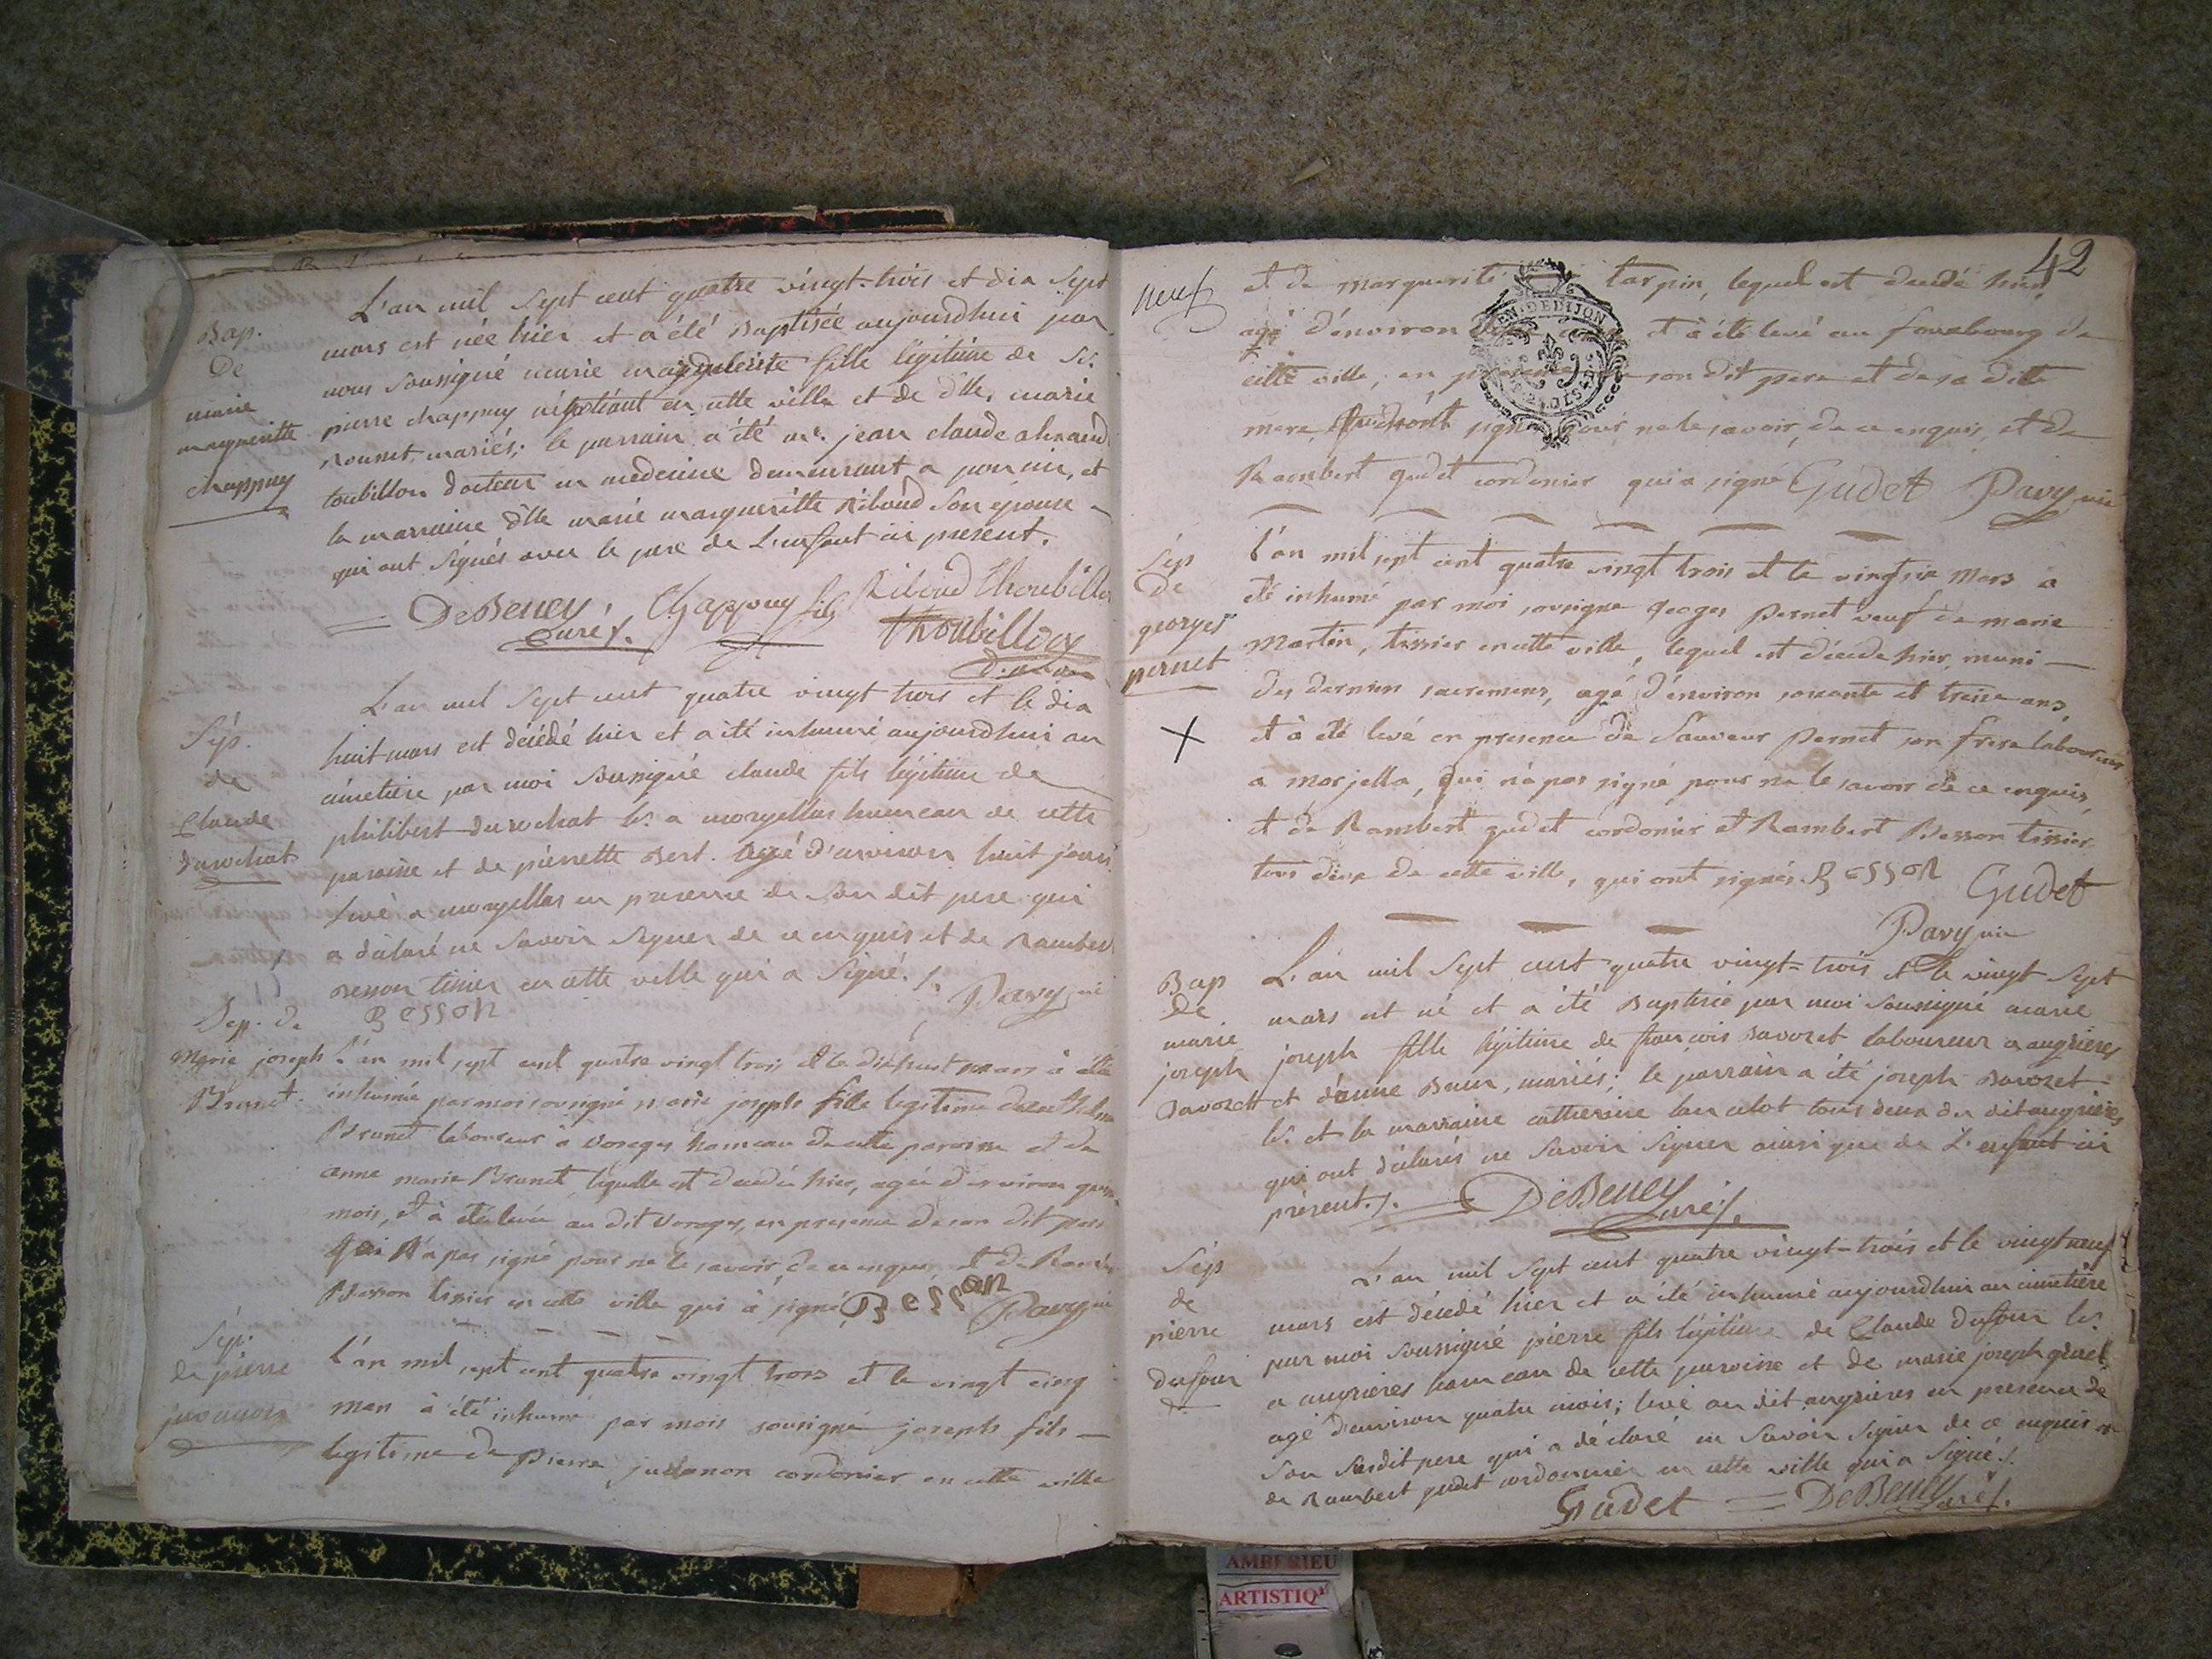 Bap.
De
marie
margueritte
chappuy
L'an mil sept cent quatre vingt-trois et dix sept
mars est née hier et a été Baptisée aujourdhui par
nous soussigné marie fille légitime de Sr.
pierre chappuy négotiant en cette ville et de dlle. marie
mariés; le parrain a été mr. jean claude
toubillon docteur en medecine demeurant a poncin, et
la marraine dlle marie margueritte Riboud son epouse
qui ont signés avec le pere de L'enfant ici present.
DeBeney Curé. Chappuy fils Riboud Thoubillon
Thoubillon
Sép.
de
Claude
durochat
L'an mil sept cent quatre vingt trois et le dix
huit mars est décédé hier et a été inhumé aujourdhui au
cimetiere par moi soussigné claude fils légitime de
philibert durochat lr. a morgellas hameau de cette
paroisse et de pierrette Bert. agé d'environ huit jours
levé a morgellas en presence de son dit pere qui
a déclaré ne savoir signer de ce enquis et de Rambert
Besson tissier en cette ville qui a signé.
Besson Pavy vic
Sep. de
Marie joseph
Brunet.
L'an mil sept cent quatre vingt trois et le dix huit mars à été
inhumée par moi sousigné marie joseph fille legitime
Brunet laboureur à Vorages hameau de cette paroisse et de
anne marie Brunet, laquelle est decedée hier, agée d'environ
mois, et à été levée au dit Vorages, en presence de son dit pere
qui n'a pas signé pour ne le savoir, de ce enquis, et de
Besson tissier en cette ville qui à signé Besson Pavy vic
Sép.
de pierre
juvanon
L'an mil sept cent quatre vingt trois et le vingt cinq
mars à été inhumé par mois sousigné joseph fils
legitime de Pierre juvanon cordonier en cette ville
42
neuf
et de marguerite tarpin, lequel est decedé hier,
agé d'environ et à été levé au fauxbourg de
cette ville, en presence son dit pere et de sa ditte
mere, signé pour ne le savoir, de ce enquis, et de
Rambert gudet cordonier qui a signé Gudet Pavy vic
EN. DE DIJON
Sép
De
georges
pernet
X
L'an mil sept cent quatre vingt trois et le vingt six Mars a
été inhumé par moi sousigné georges Pernet veuf de marie
Martin, tissier en cette ville, lequel est décedé hier, muni
des derniers sacremens, agé d'environ soixante et treize ans,
et à été levé en presence de Sauveur Pernet son frere laboureur
a morjella, qui n'a pas signé pour ne le savoir de ce enquis,
et de Rambert gudet cordonier et Rambert Besson tissier
tous deux de cette ville, qui ont signés Besson Gudet
Pavy vic
Bap
De
marie
joseph
Savozet
L'an mil sept cent quatre vingt-trois et le vingt sept
mars est né et a été Baptisée par moi soussigné marie
joseph fille légitime de françois Savozet laboureur a angrieres
et d'anne mariés; le parrain a été joseph Savozet
lr. et la marraine catherine lancelot tous deux du dit angrieres
qui ont déclarés ne savoir signer ainsi que de L'enfant ici
présent. DeBeney Curé.
Sép
de
pierre
dufour
L'an mil sept cent quatre vingt-trois et le vingt neuf
mars est décedé hier et a été inhumé aujourdhui au cimetière
par moi soussigné pierre fils légitime de Claude dufour lr.
a angrieres hameau de cette paroisse et de marie joseph
agé d'environ quatre mois; levé au dit angrieres en presence de
son susdit pere qui a déclaré ne savoir signer de ce enquis et
de Rambert gudet cordonnier en cette ville qui a signé.
Gudet DeBeney Curé.
AMBERIEU
ARTISTIQ